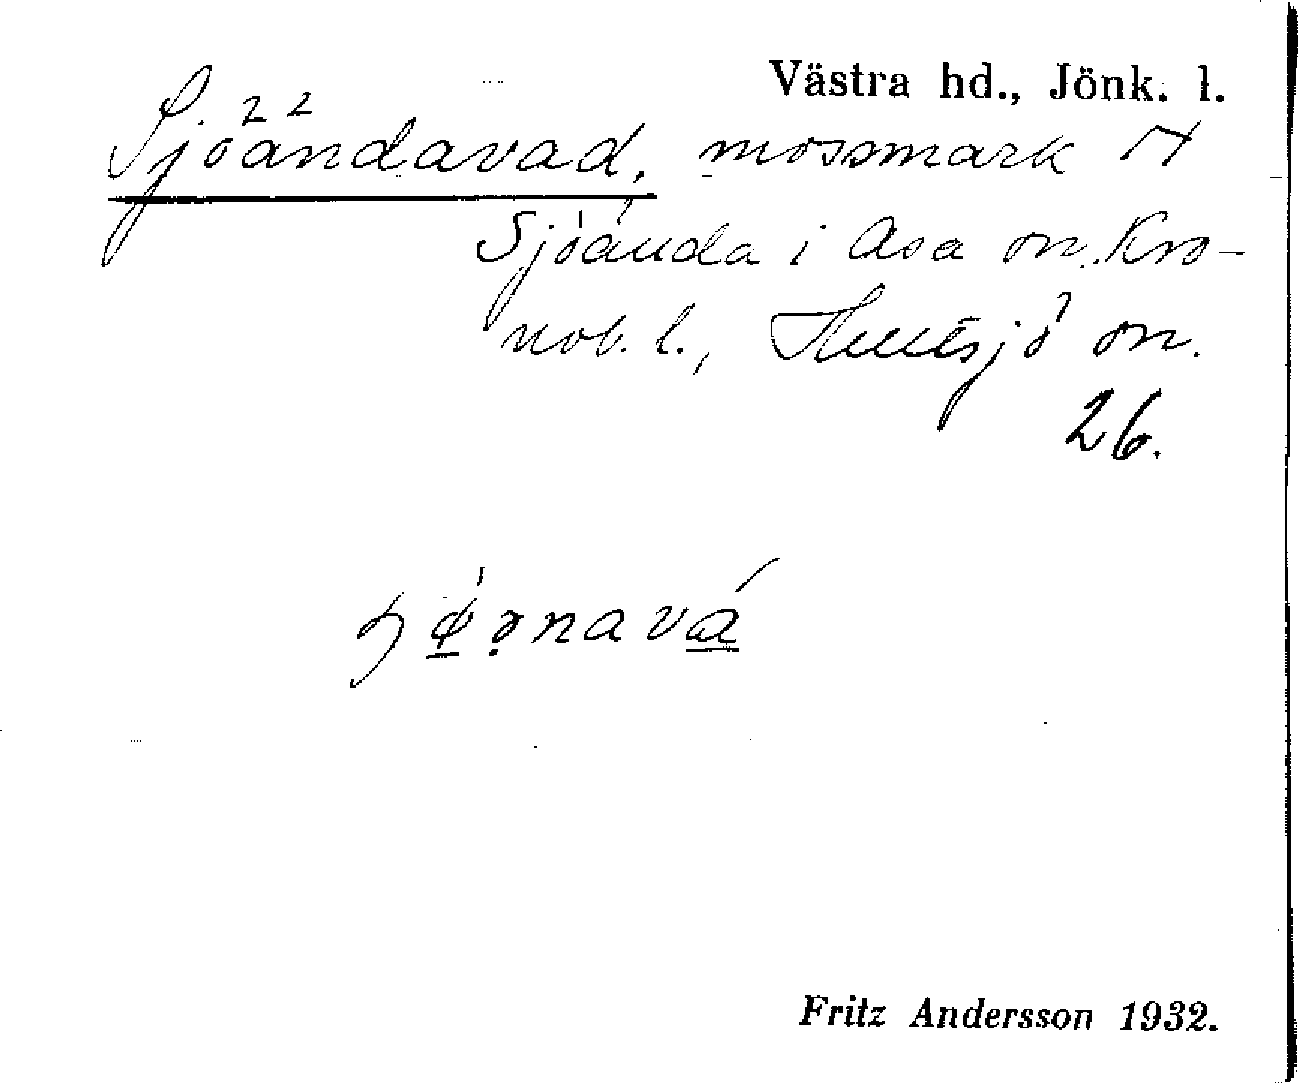 Västra hd., Jönk. l.
Sjöändavad, mossmark t
Sjöända i Asa sn. Kro-
nob. l., Hultsjö sn.
26.
Fritz Andersson 1932.